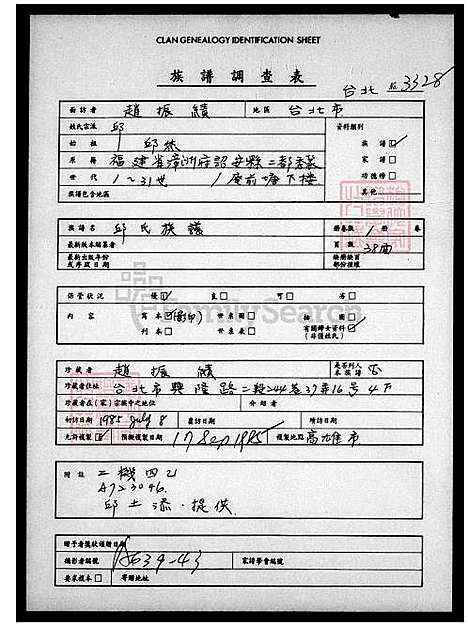 CLAN GENEALOGY IDENTIFICATION SHEET
族譜調查表
台北 № 3328
面訪者 趙振績 地區 台北市
姓氏宗派 邱 資料類別
始祖 邱 族譜
原籍 福建省漳州府詔安縣二都秀篆 家譜
世代 1~31世 功德榜
族譜包含地區 其他
族譜名 邱氏族譜 冊卷數 1 冊 卷
最新版本編纂者 頁數 38面
最新出版年份 繪線繪圖
或序跋日期 部份種類
保管狀況 優 良 可 否
內容 寫本 (影印) 世系圖 插圖
刊本 世系表 有關婦女資料
(非僅姓氏)
珍藏者 趙振績 是否列入本族譜 否
珍藏者住址 台北市興隆路二段244巷37弄16號4下
珍藏者在(家)宗族中之地位 介紹者
初訪日期 1985 July 8 重訪日期 續訪日期
允許複製 預擬複製日期 17 Sep 1985 複製地點 高雄市
附註 二機四乙
A723046.
邱土添.提供.
贈予者獎狀頒贈日期
攝影者編號 A639-43 家譜學會編號
要求複本 寄贈地址
FamilySearch